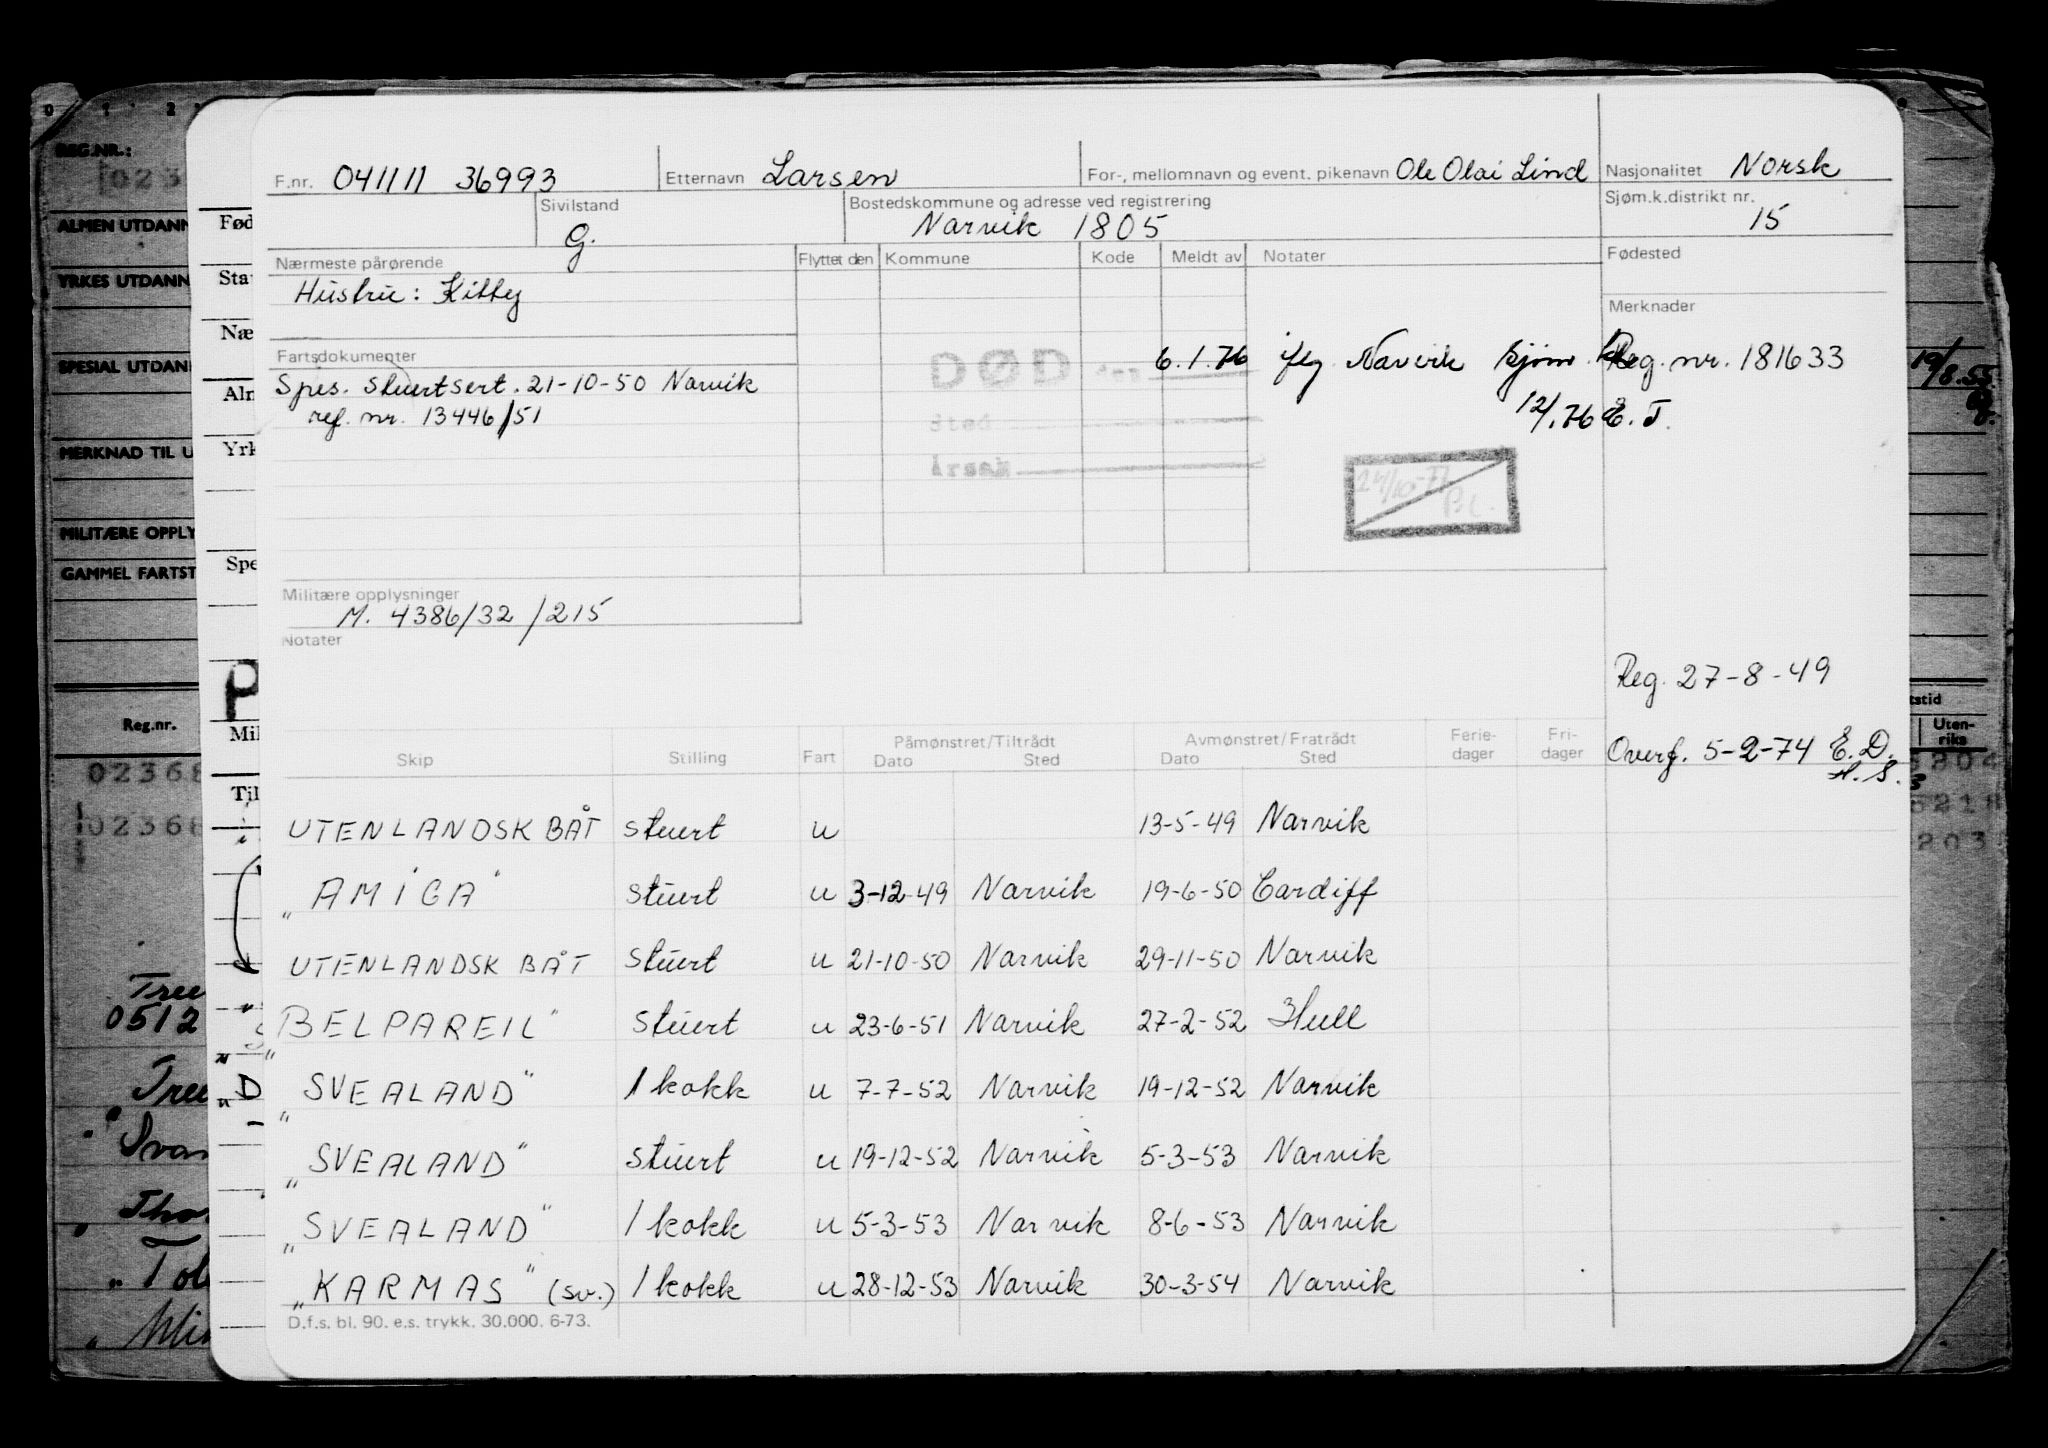 F.nr. 041111 36993 Etternavn Larsen For-, mellomnavn og event. pikenavn Ole Olai Lind Nasjonalitet Norsk
Sivilstand G. Bostedskommune og adresse ved registrering Narvik 1805 Sjøm.k.distrikt nr. 15
Nærmeste pårørende Flyttet den Kommune Kode Meldt av Notater Fødested
Hustru: Kitty
Merknader
Fartsdokumenter
DØD den 6.1.76 Narvik Reg. nr. 181633
Spes. stuertsert. 21-10-50 Narvik
ref. nr. 13446/51
Sted
12/1.76 E. T.
Årsak
24/10-77
BL.
Militære opplysninger
M. 4386/32 /215
Notater
Reg. 27-8-49
Overf. 5-2-74 E. D.
H. S.
Skip Stilling Fart Påmønstret/Tiltrådt Dato Sted Avmønstret/Fratrådt Dato Sted Ferie-dager Fri-dager
UTENLANDSK BÅT stuert u 13-5-49 Narvik
"AMIGA" stuert u 3-12-49 Narvik 19-6-50 Cardiff
UTENLANDSK BÅT stuert u 21-10-50 Narvik 29-11-50 Narvik
"BELPAREIL" stuert u 23-6-51 Narvik 27-2-52 Hull
"SVEALAND" 1 kokk u 7-7-52 Narvik 19-12-52 Narvik
"SVEALAND" stuert u 19-12-52 Narvik 5-3-53 Narvik
"SVEALAND" 1 kokk u 5-3-53 Narvik 8-6-53 Narvik
"KARMAS" (sv.) 1 kokk u 28-12-53 Narvik 30-3-54 Narvik
D.f.s. bl. 90. e.s. trykk. 30.000. 6-73.
REG.NR.:
023
ALMEN UTDANN
YRKES UTDANN
SPESIAL UTDAN
MERKNAD TIL U
MILITÆRE OPPLY
GAMMEL FARTST
Reg.nr.
02368
02368
Tree
0512
Fød
Sta
Næ
Aln
Yrk
Spe
Mil
Til
19/8.55
Uten-
riks